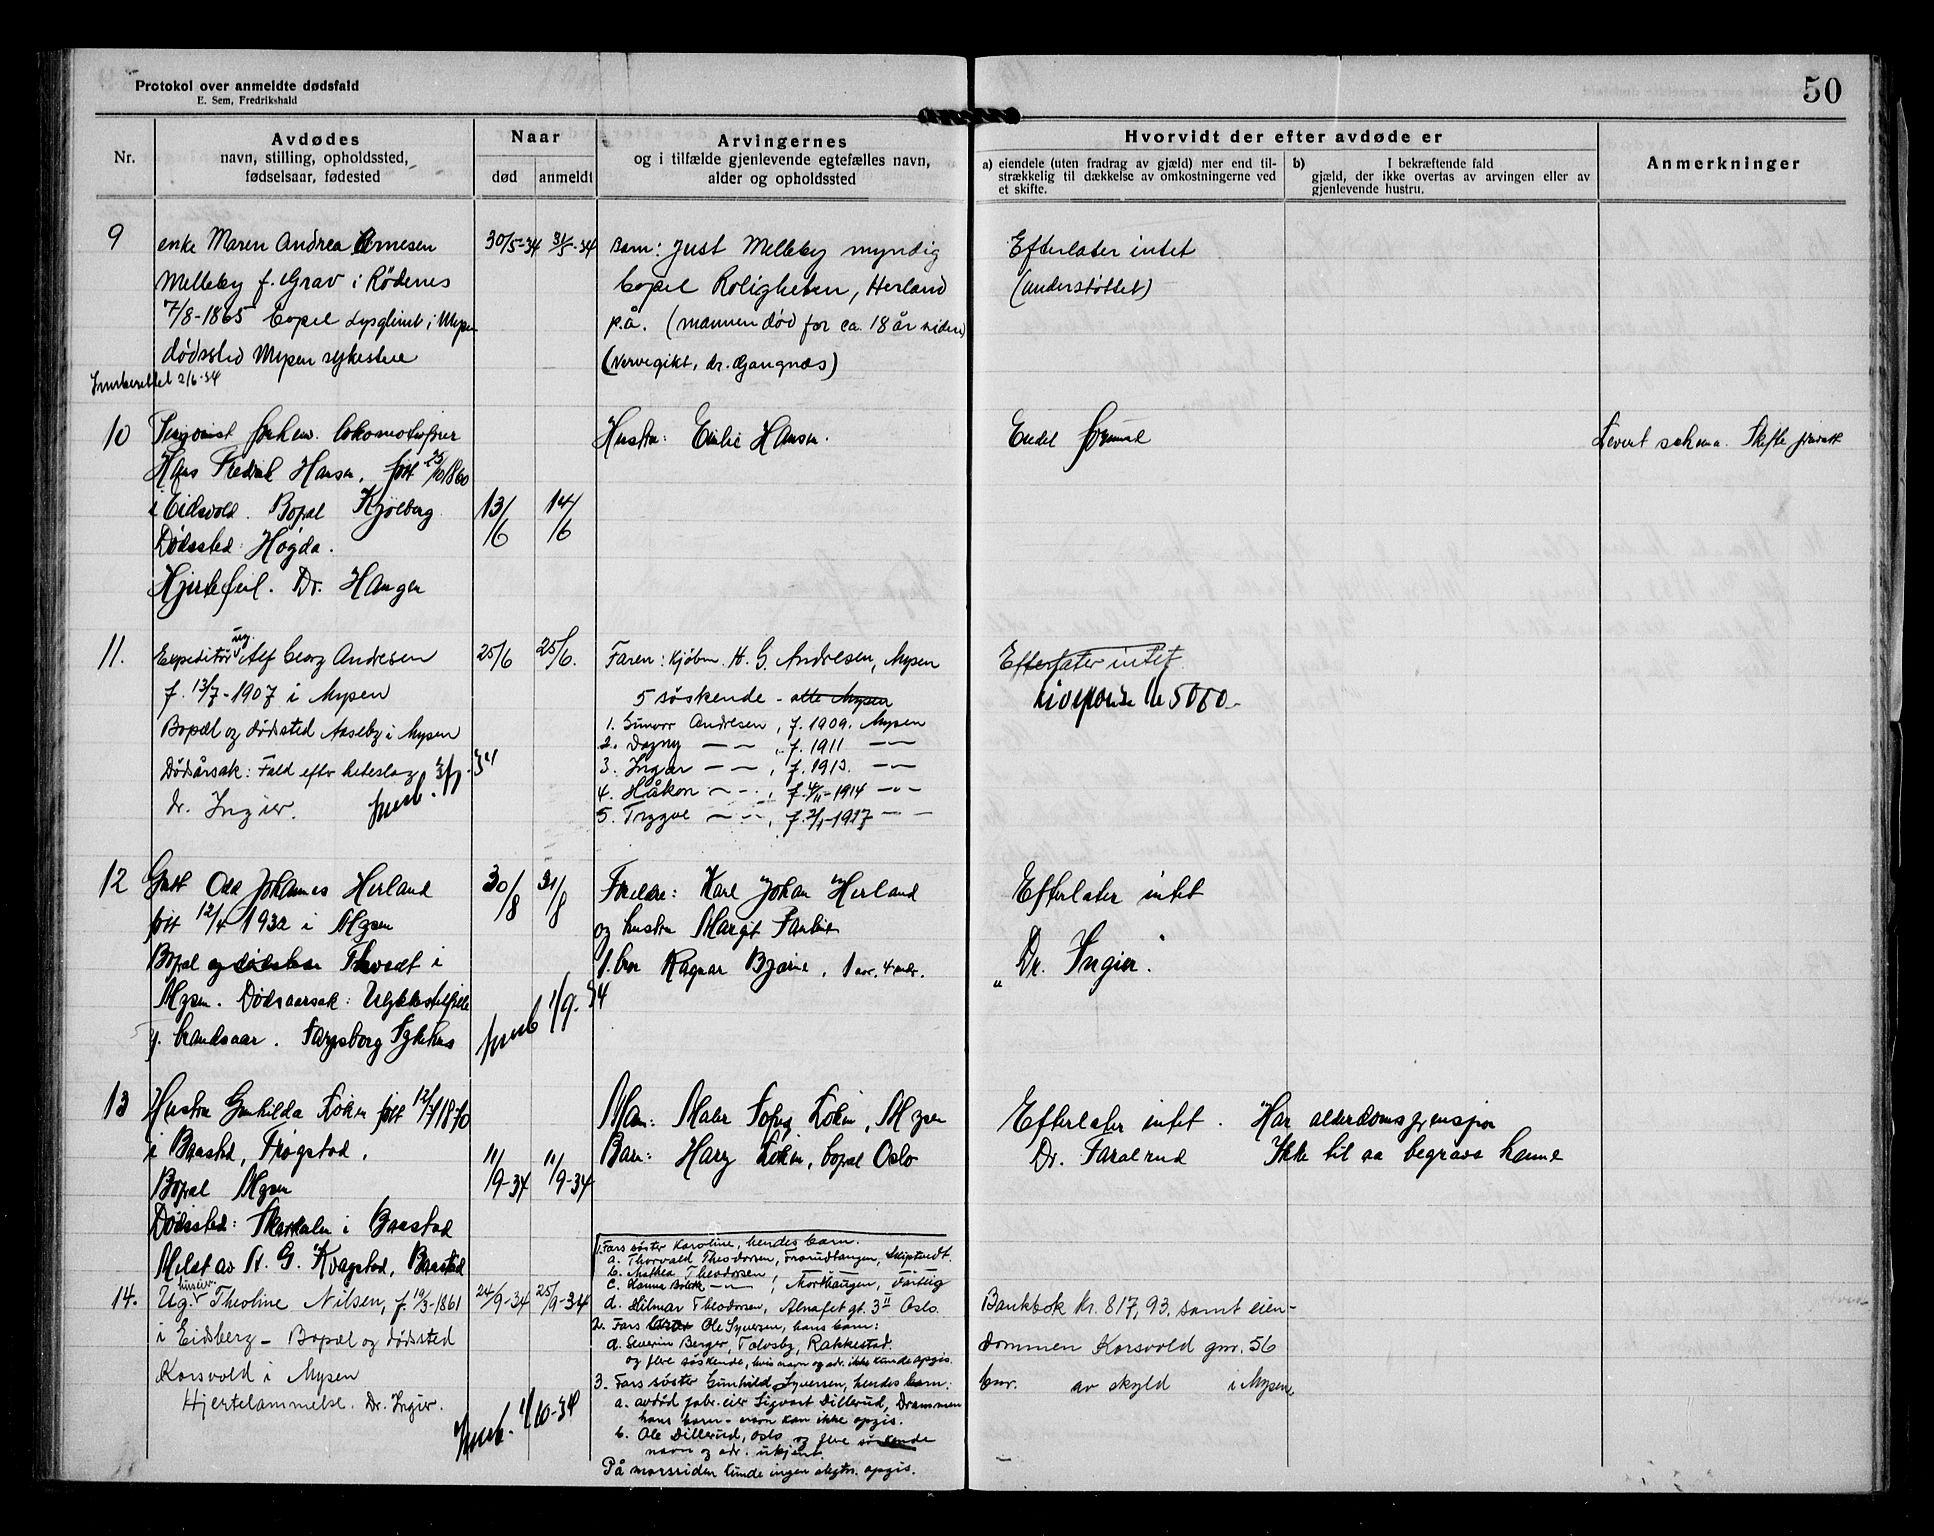 Protokol over anmeldte dødsfald
E. Sem, Fredrikshald
50
Nr.
Avdødes
navn, stilling, opholdssted,
fødselsaar, fødested
Naar
død
anmeldt
Arvingernes
og i tilfælde gjenlevende egtefælles navn,
alder og opholdssted
Hvorvidt der efter avdøde er
a) eiendele (uten fradrag av gjæld) mer end til-
strækkelig til dækkelse av omkostningerne ved
et skifte.
b) I bekræftende fald
gjæld, der ikke overtas av arvingen eller av
gjenlevende hustru.
Anmerkninger
9
enke Maren Andrea Arnesen
Melleby f. Grav i Rødenes
7/8-1865 bopel Lysglimt i Mysen
dødssted Mysen sykestue
Innberettet 2/6-34
30/5-34
31/5-34
Barn: Just Melleby myndig
bopel Roligheten, Herland
p.å. (mannen død for ca. 18 år siden)
(Nervegikt, dr. Gangnæs)
Efterlater intet
(understøttet)
10
Pensjonist forhenv. lokomotivfører
Hans Fredrik Hansen, født 25/10 1860
i Eidsvold. Bopæl Kjølberg
Dødssted: Høgda.
Hjertefeil. Dr. Haugen
13/6
14/6
Hustru: Emilie Hansen.
Endel formue
Levert schema. Skifte privat
11.
Expeditør ug. Alf Georg Andresen
f. 13/7-1907 i Mysen
Bopæl og dødssted Aaseby i Mysen
Dødsårsak: Fald efter heteslag
dr. Ingier. innb. 3/7-34
25/6
25/6.
Faren: Kjøbm. H. G. Andresen, Mysen
5 søskende - alle Mysen
1. Gunvor Andresen, f. 1909. Mysen
2. Dagny — — , f. 1911 — —
3. Ingar — — , f. 1913. — —
4. Håkon — — , f. 4/11-1914 — —
5. Trygve — — , f. 2/1-1917 — —
Efterlater intet.
Livspolise kr 5000.-
12
Gutt Odd Johannes Herland
født 12/4 1932 i Mysen
Bopæl og dødssted Thvedt i
Mysen. Dødsaarsak: Ulykkestilfelle
p. brandsaar. Sarpsborg Sykehus
30/8
31/8
innb 1/9-34
Foreldre: Karl Johan Herland
og hustru Margit Pauline
1. bror Ragnar Bjarne, 1 aar. 4 mdr.
Efterlater intet
Dr. Ingier.
13
Hustru Gunhilda Løken født 12/7 1870
i Baastad, Trøgstad.
Bopæl Mysen
Dødssted: Skardalen i Baastad
Meldt av A. G. Kvagstad, Baastad
11/9-34
11/9-34
Man: Maler Sofus Løken, Mysen
Barn: Harry Løken, bopæl Oslo
Efterlater intet. Har alderdomspensjon
Dr. Faralrud Ikke til aa begrave henne
14.
Ug. huseier Theoline Nilsen, f. 19/3-1861
i Eidsberg - Bopæl og dødssted
Korsvold i Mysen
Hjertelammelse. Dr. Ingier.
24/9-34
25/9-34
Innb. 1/10-34
1. Fars søster Karoline, hendes barn.
a. Thorvald Theodorsen, Forsudtangen, Skiptvedt.
b. Mathea Theodorsen
c. Hanna — — , Morkhaugen, Varteig
d. Hilmar Theodorsen, Alnafet gt. 3 II Oslo.
2. Fars bror Ole Syversen, hans barn:
a. Severin Berger, Tolvsby, Rakkestad.
og flere søskende, hvis navn og adr. ikke kunde opgis.
3. Fars søster Gunhild Syversen, hendes barn:
a. avdød fabr. eier Sigvart Dillerud, Drammen
hans barn - navn kan ikke opgis.
b. Ole Dillerud, Oslo og flere søskende
navn og adr. ukjent.
På morssiden kunde ingen slegtn. opgis.
Bankbok kr. 817,93. samt eien-
dommen Korsvold gnr. 56
bnr. av skyld i Mysen